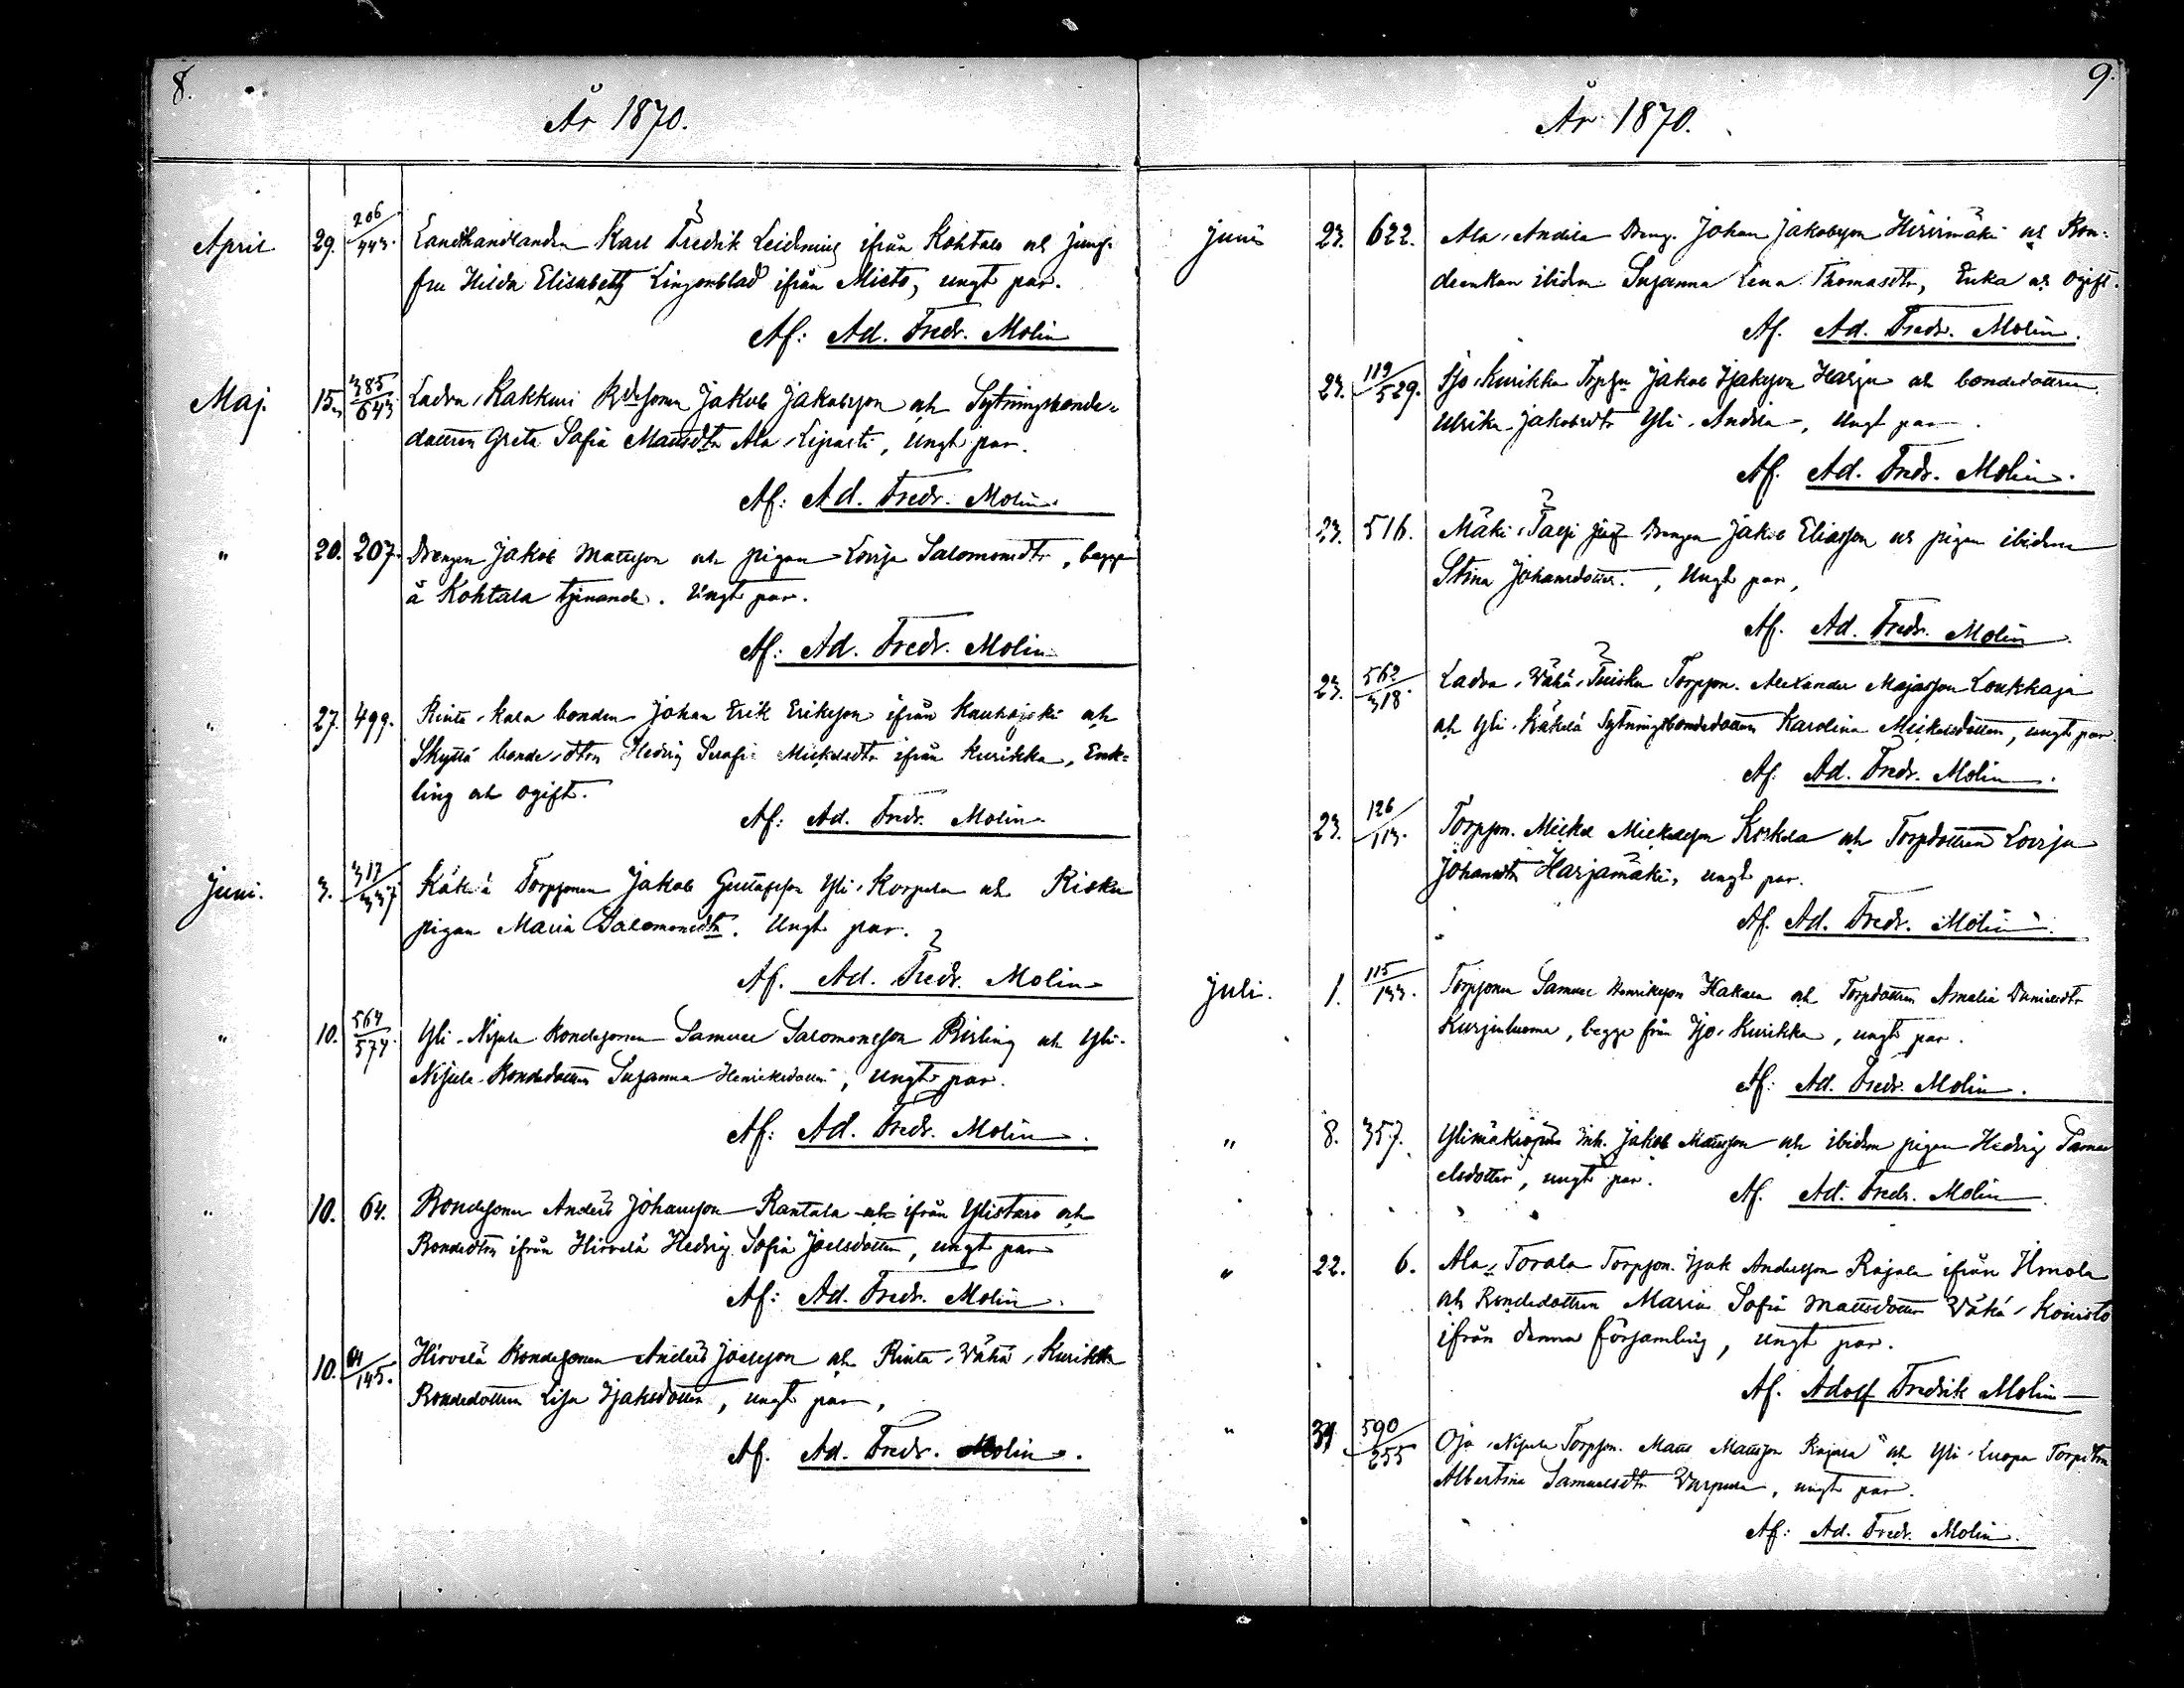 8.
År 1870.
April 29. 206/443. Landthandlanden Karl Fredrik Leidenius ifrån Kohtala och jung-
fru Hilda Elisabeth Lingonblad ifrån Mieto, ungt par.
Af: Ad. Fredr. Molin
Maj. 15. 385/643 Ladva, Kakkuri Bdesonen Jakob Jakobsson och Sytningsbonde-
dottren Greta Sofia Mattsdtr Ala, , Ungt par.
Af: Ad. Fredr. Molin
" 20. 207. Drengen Jakob Mattsson och pigan Lovisa Salomonsdtr, begge
å Kohtala tjenande. Ungt par.
Af: Ad. Fredr. Molin
" 27. 499. Rinta, kala bonden Johan Erik Eriksson ifrån Kauhajoki och
Skyttä bonde, dtrn Hedvig Serafi Mickelsdtr ifrån Kurikka, Enk-
ling och ogift.
Af: Ad. Fredr. Molin
Juni. 3. 317/337 Käkelä Torpsonen Jakob Gustafsson Yli, Korpela och Risku
pigan Maria Salomonsdtr. Ungt par.
Af. Ad. Fredr. Molin
" 10. 564/574. Yli-Nisula bondesonen Samuel Salomonsson Birling och Yli-
Nisula-Bondedottren Susanna Henriksdotter, ungt par.
Af: Ad. Fredr. Molin.
" 10. 64. Bondesonen Anders Johansson Rantala och ifrån Ylistaro och
Bondedtrn ifrån Hirvelä Hedvig Sofia Joelsdotter, ungt par
Af: Ad. Fredr. Molin.
10. 64/145. Hirvelä Bondesonen Anders Joelsson och Rinta, Vähä, Kurikka
Bondedottren Lisa Isaksdotter, ungt par,
Af. Ad. Fredr. Molin.
9.
År 1870.
Juni 23. 622. Ala, Andila Dreng. Johan Jakobsson Hiirimäki och Bon-
deenkan ibidem Susanna Lena Thomasdtr, Enka och Ogift.
Af. Ad. Fredr. Molin.
23. 119/529. Iso, Kurikka Torpsn Jakob Isaksson Harju och bondedottren
Ulrika Jakobsdtr Yli, Andila, Ungt par.
Af. Ad. Fredr. Molin.
23. 516. Mäki, Taipi Drengen Jakob Eliasson och pigan ibidem
Stina Johansdotter, Ungt par,
Af. Ad. Fredr. Molin.
23. 562/318. Ladva, Vähä, Torpson. Alexander Loukkaja
och Yli, Käkelä Sytningsbondedottren Karolina Mickelsdotter, ungt par.
Af. Ad. Fredr. Molin.
23. 126/113. Torpson. Mickel Mickelsson Koskela och Torpdottren Lovisa
Johansdtr Harjamäki, ungt par.
Af. Ad. Fredr. Molin.
Juli. 1. 115/133. Torpsonen Samuel Henriksson Hakala och Torpdottren Amalia Danielsdtr
Kurjenluoma, begge från Iso, Kurikka, ungt par.
Af: Ad. Fredr. Molin.
" 8. 357. Ylimäkiöpää Inh. Jakob Mattsson och ibidem pigan Hedvig Samu
elsdotter, ungt par.
Af. Ad. Fredr. Molin.
" 22. 6. Ala, Torala Torpson. Isak Andersson Rajala ifrån Ilmola
och Bondedottren Maria Sofia Mattsdotter Vähä, Koivisto
ifrån denna församling, ungt par.
Af. Adolf Fredrik Molin
" 31 590/255 Oja, Nisula Torpson. Matts Mattsson Rajala och Yli, Luopa Torpdtrn
Albertina Samuelsdtr Varpula, ungt par.
Af: Ad. Fredr. Molin.